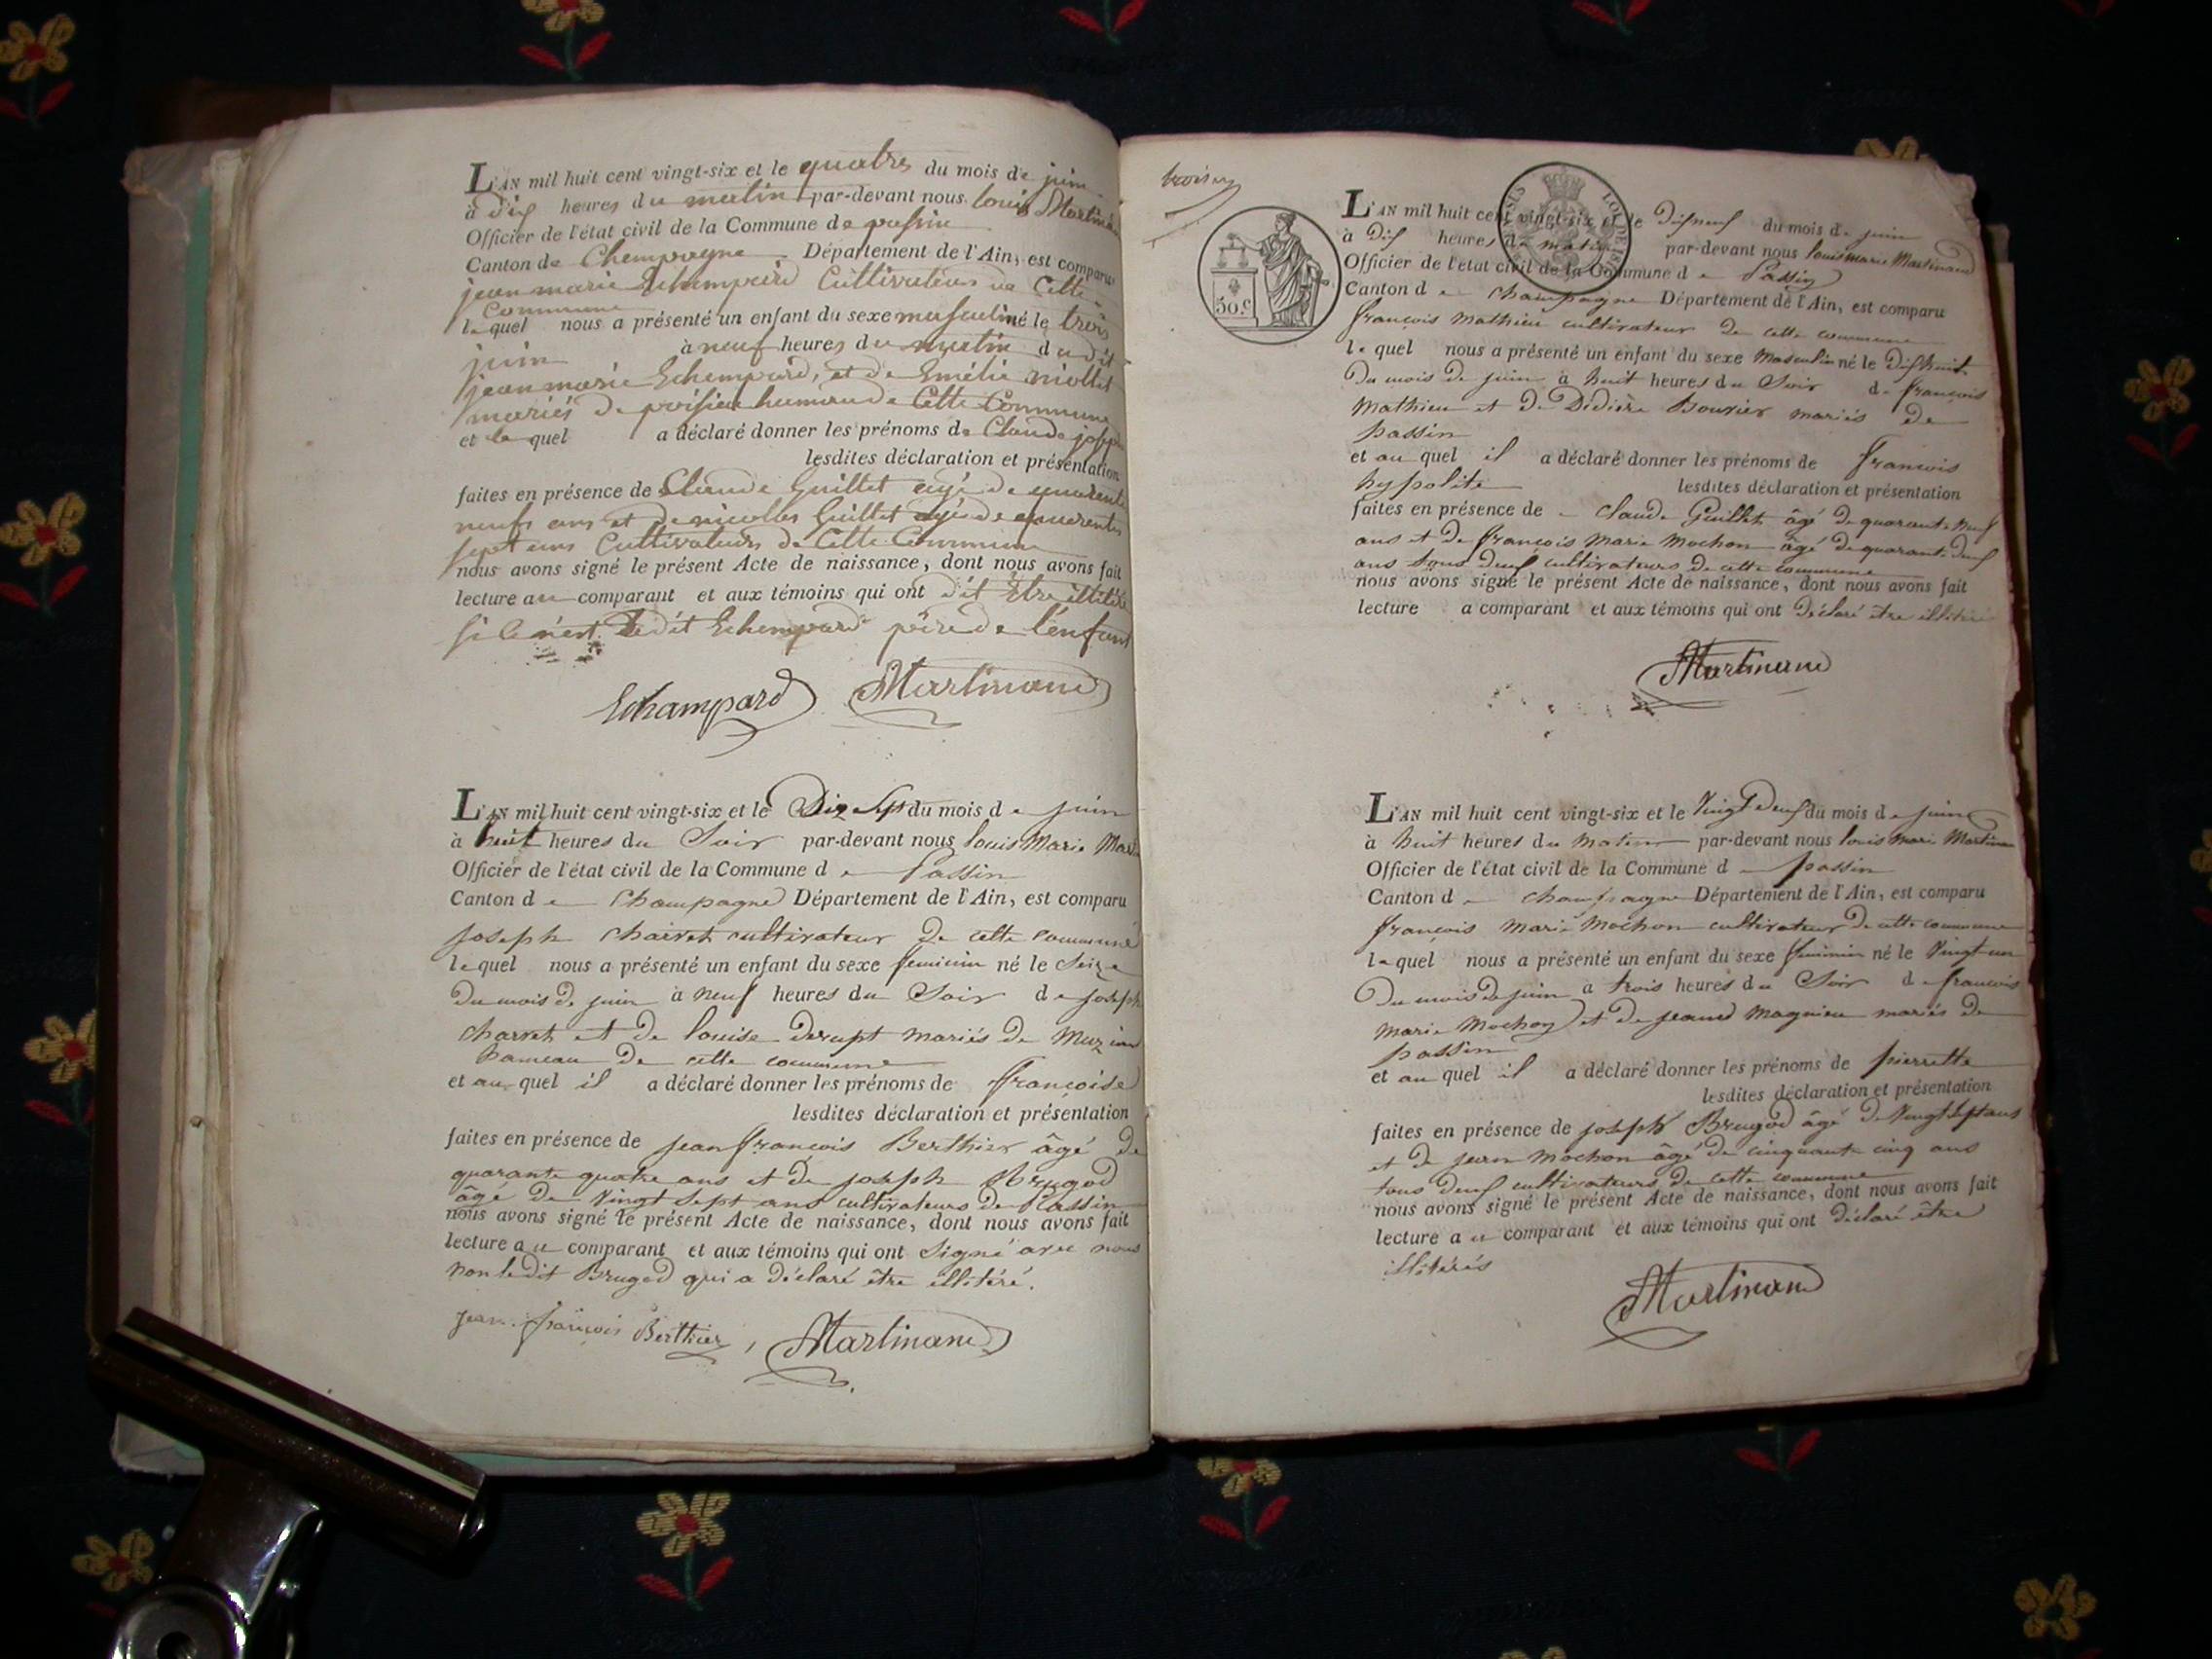 L'AN mil huit cent vingt-six et le quatres du mois de juin
à dix heures du matin par-devant nous louis Martinand
Officier de l'état civil de la Commune de passin
Canton de Champagne Département de l'Ain, est comparu
jean marie Echempard Cultivateur de Cette
Commune
le quel nous a présenté un enfant du sexe masculin né le trois
juin à neuf heures du matin dudit
jean marie Echempard, et de Emélie niollet
mariés de hameau de Cette Commune
et le quel a déclaré donner les prénoms de Claude
lesdites déclaration et présentation
faites en présence de Claude Guillet agé de quarente
neufs ans et de nicolles Guillet agé de quarentes
sept ans Cultivateurs de Cette Commune
nous avons signé le présent Acte de naissance, dont nous avons fait
lecture au comparant et aux témoins qui ont dit Etre
si ce n'est ledit Echempard père de l'enfant
Echampard Martinand
L'AN mil huit cent vingt-six et le Dix Sept du mois de juin
à huit heures du Soir par-devant nous louis Marie
Officier de l'état civil de la Commune de Passin
Canton de Champagne Département de l'Ain, est comparu
joseph charvet cultivateur De cette commune
le quel nous a présenté un enfant du sexe feminin né le Seize
Du mois de juin à neuf heures du Soir de joseph
charvet et de louise Derupt mariés de
hameau De cette commune
et au quel il a déclaré donner les prénoms de françoise
lesdites déclaration et présentation
faites en présence de jean françois Berthier âgé De
quarante quatre ans et De joseph Brugod
âgé De Vingt Sept ans cultivateurs de Passin
nous avons signé le présent Acte de naissance, dont nous avons fait
lecture au comparant et aux témoins qui ont Signé avec nous
non ledit Brugod qui a Déclaré être illitéré.
jean françois Berthier, Martinand
50.c
L'AN mil huit cent vingt-six et le Dixneuf du mois de juin
à Dix heures du matin par-devant nous louis marie Martinand
Officier de l'état civil de la Commune de Passin
Canton de Champagne Département de l'Ain, est comparu
françois Mathieu cultivateur de cette commune
le quel nous a présenté un enfant du sexe Masculin né le Dixhuit
Du mois De juin à huit heures du Soir de françois
Mathieu et De Didière Bouvier mariés De
passin
et au quel il a déclaré donner les prénoms de françois
hypolite lesdites déclaration et présentation
faites en présence de claude Guillet âgé De quarante neuf
ans et De françois Marie Mochon âgé De quarante deux
ans tous deux cultivateurs de cette commune
nous avons signé le présent Acte de naissance, dont nous avons fait
lecture a comparant et aux témoins qui ont Déclaré être
Martinand
L'AN mil huit cent vingt-six et le Vingt Deux du mois de juin
à huit heures du Matin par-devant nous louis marie Martinand
Officier de l'état civil de la Commune de passin
Canton de Champagne Département de l'Ain, est comparu
françois Marie Mochon cultivateur De cette commune
le quel nous a présenté un enfant du sexe feminin né le Vingt-un
Du mois De juin à trois heures du Soir de francois
Marie Mochon et De jeanne Magnieu mariés De
passin
et au quel il a déclaré donner les prénoms de pierrette
lesdites déclaration et présentation
faites en présence de joseph Brugod âgé De Vingt Sept ans
et De jean Mochon âgé De cinquante cinq ans
tous deux cultivateurs De cette commune
nous avons signé le présent Acte de naissance, dont nous avons fait
lecture au comparant et aux témoins qui ont Déclaré être
illitérés
Martinand